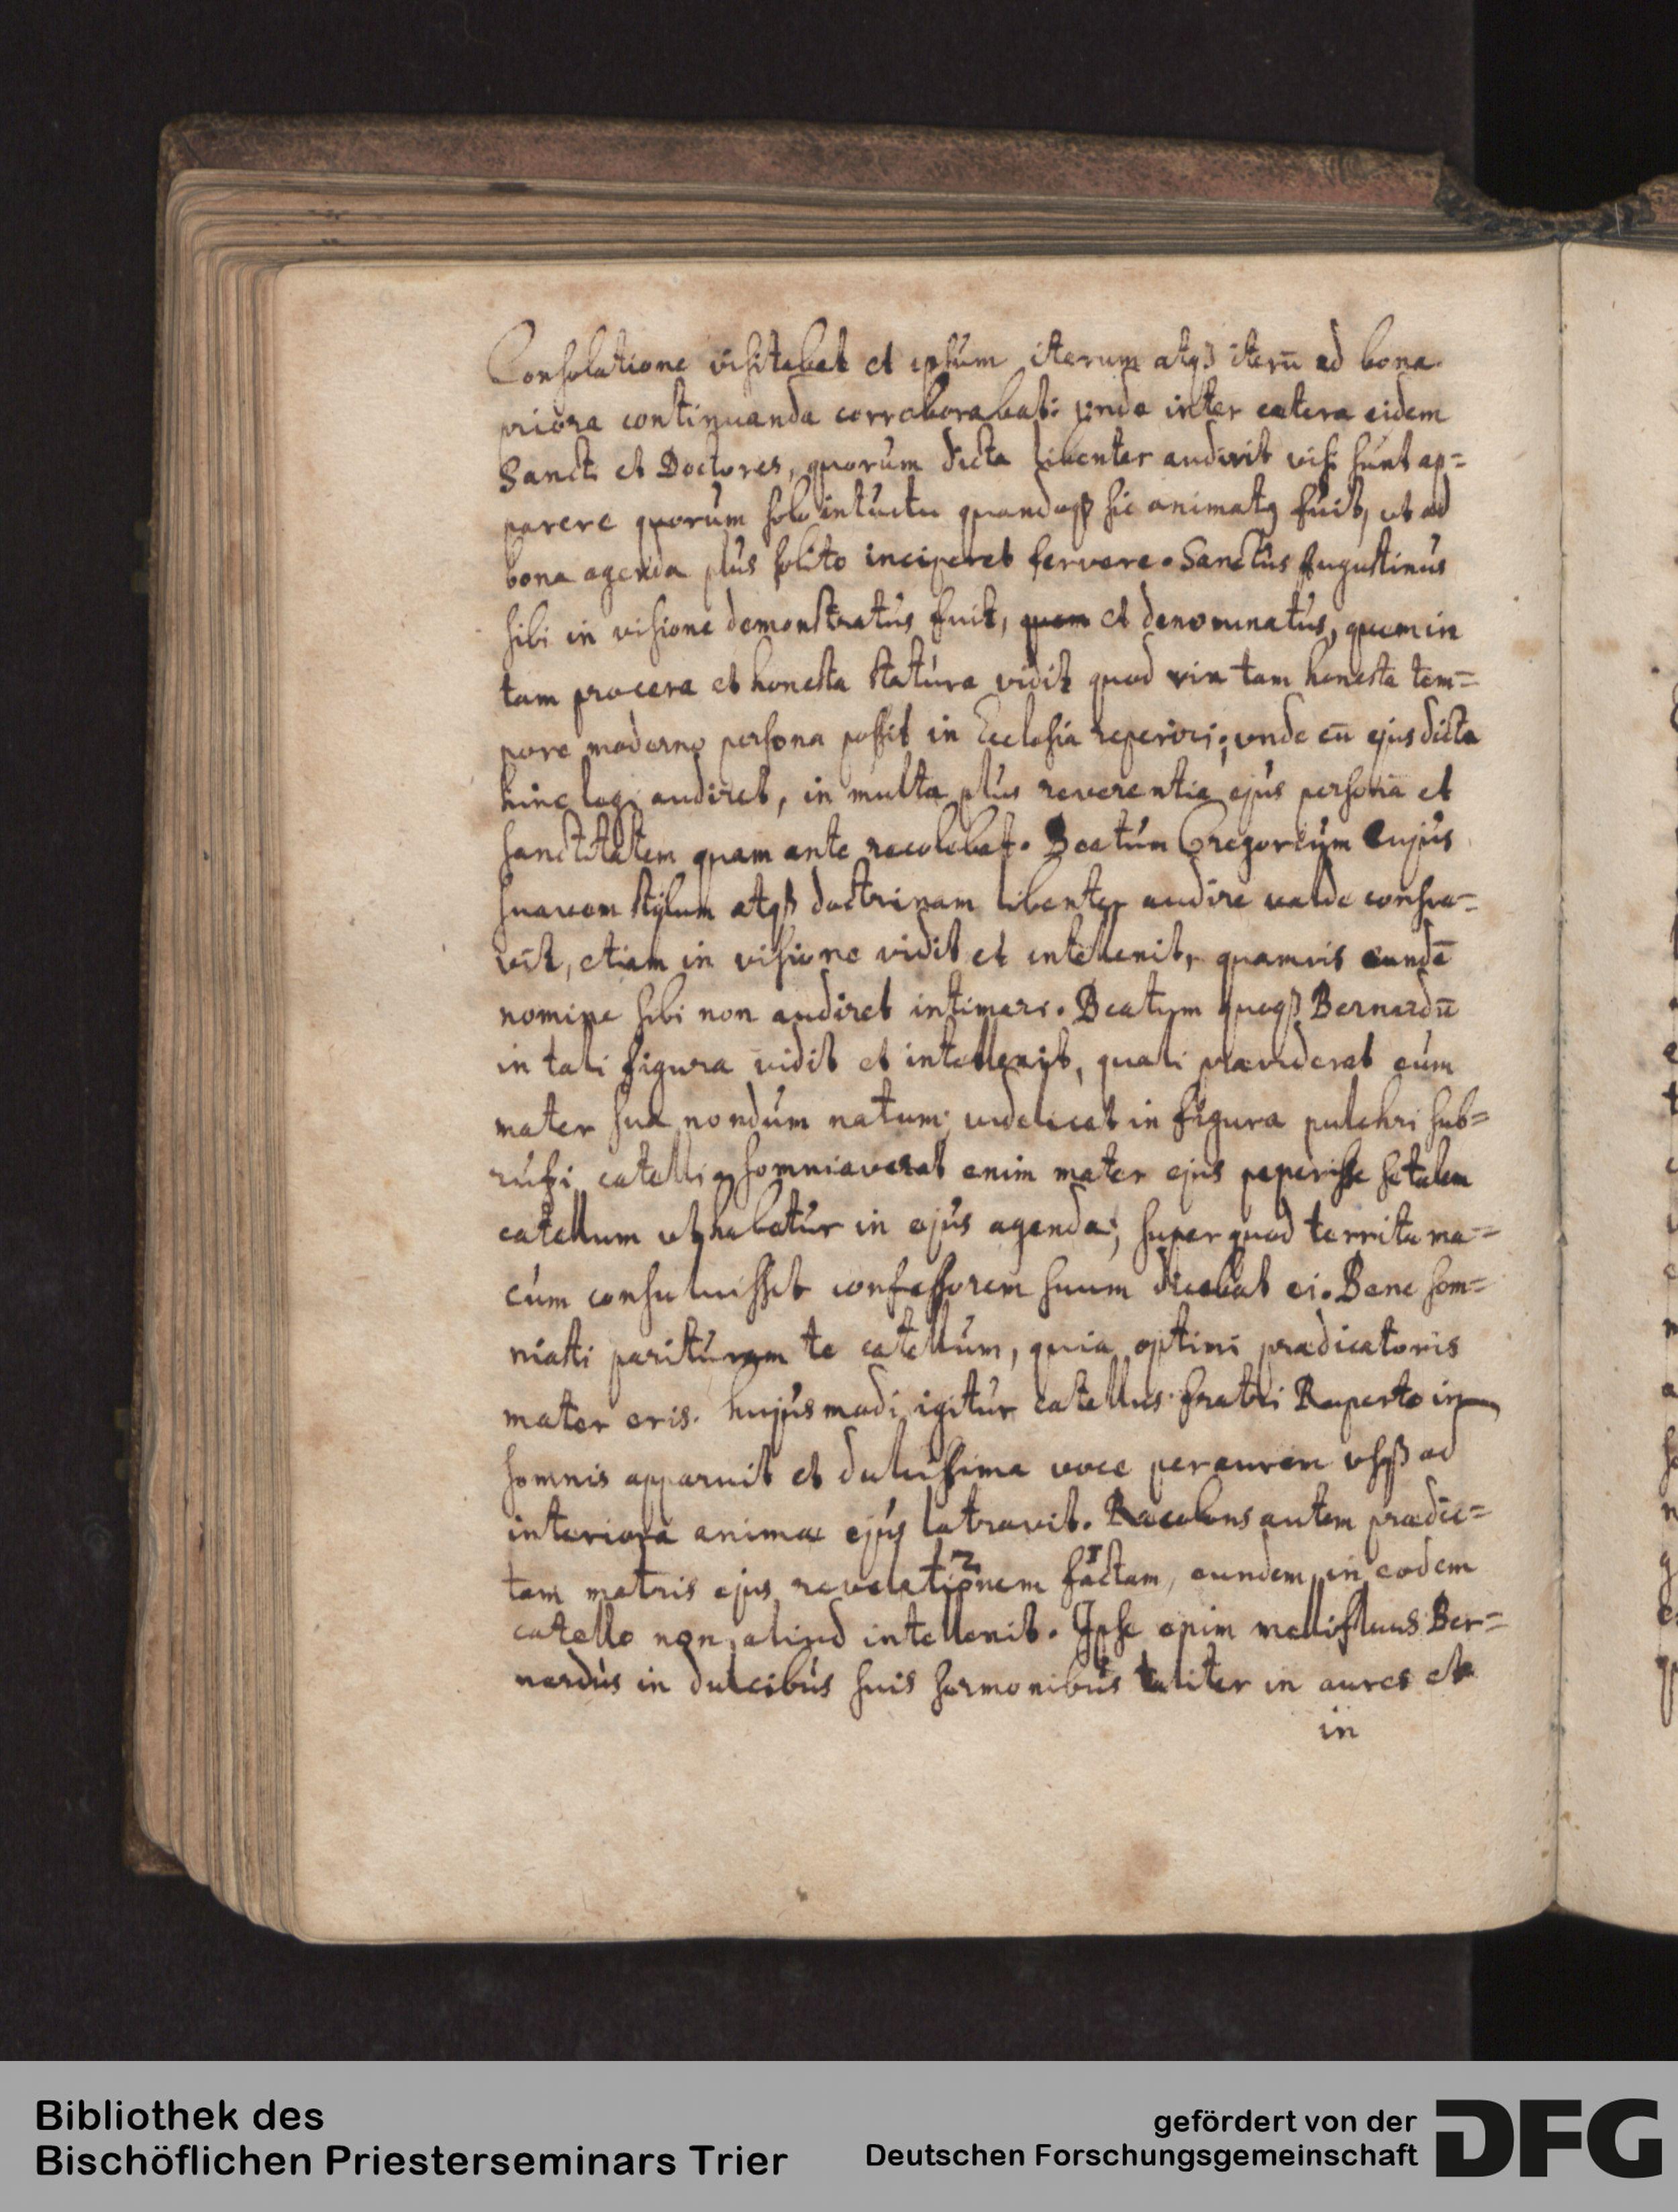 Consolatione visitabat et ipsúm iterum atqß iterū ad bona
priora continuanda corroborabat: vnde inter cætera eidem
Sancti et Doctores, quorúm dicta libenter audivit visi súnt ap=
parere quorúm solo intúitu quandoqß sic animatq fúit, ut ad
bona agenda plús solito inciperet fervere. Sanctús Augustinús
sibi in visione demonstratús fuit, quem et denominatús, quem in
tam procera et honesta statúra vidit quod vix tam honesta tem=
pore moderno persona possit in Ecclesia reperiri; vnde cū ejus dicta
hinc legi audiret, in multa plús reverentia ejús personā et
sanctitatem quam ante recolebat. Beatúm Gregoriúm cujús
suavem stÿlum atqß doctrinam libenter audire valde consue=
vit, etiam in visione vidit et intellexit, quamvis eundē
nomine sibi non audiret intimari. Beatum quoqß Bernardū
in tali figura vidit et intellexit, quali præviderat eúm
mater sua nondúm natum; videlicet in figura pulchri sub=
rúfi catelli, somniaverat enim mater ejús peperisse se talem
catellum ut habetúr in ejús agenda; super quod territa ma=
cúm consuluisset confessorem suum dicebat ei. Bene som=
niasti paritúram te catellúm, quia optimi prædicatoris
mater eris. hujúsmodi igitúr catellus fratri Ruperto in
somnis apparuit et dulcissima voce per aurem vsqß ad
interiora animæ ejús latravit. Recolens autem prædic=
tam matris ejus revelationem 2 factam 1, eundem in eodem
catello non aliud intellexit. Ipse enim mellifluus Ber=
nardús in dulcibús suis sermonibús taliter in aures et
in
Bibliothek des
Bischöflichen Priesterseminars Trier
gefördert von der
Deutschen Forschungsgemeinschaft
DFG